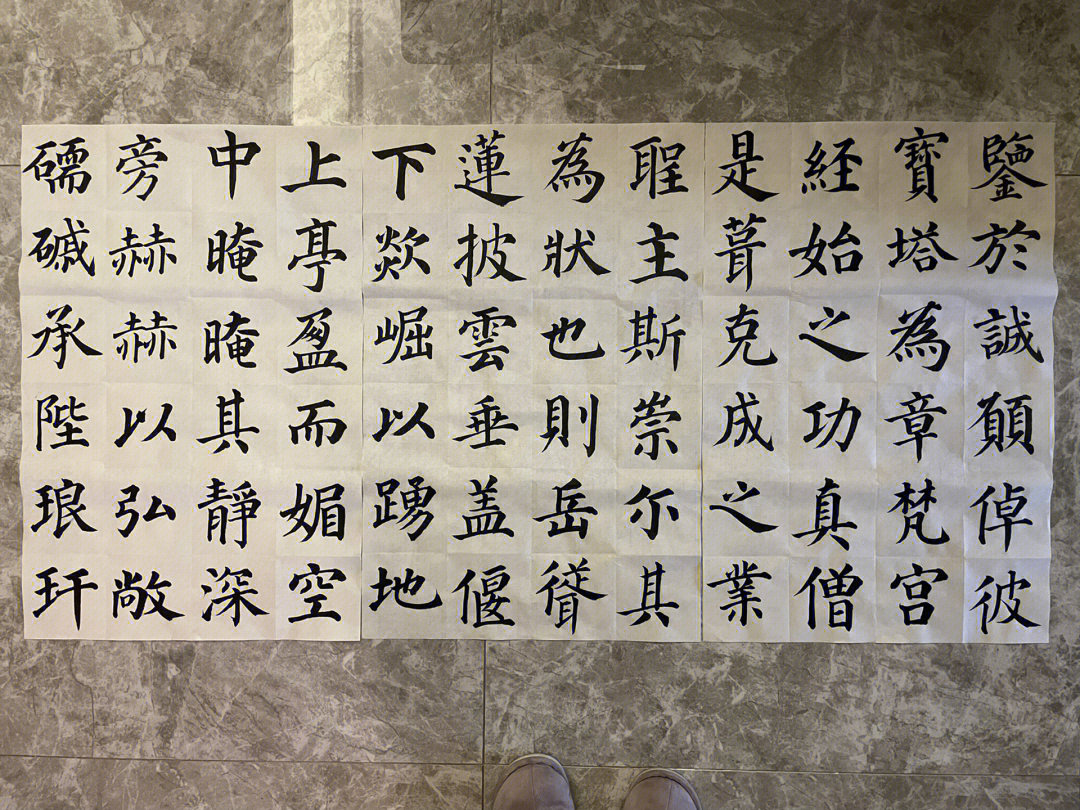 鑒於誠願倬彼
寶塔為章梵宮
經始之功真僧
是葺克成之業
聖主斯崇尔其
為狀也則岳聳
蓮披雲垂盖偃
下欻崛以踴地
上亭盈而媚空
中晻晻其靜深
旁赫赫以弘敞
礝磩承陛琅玕